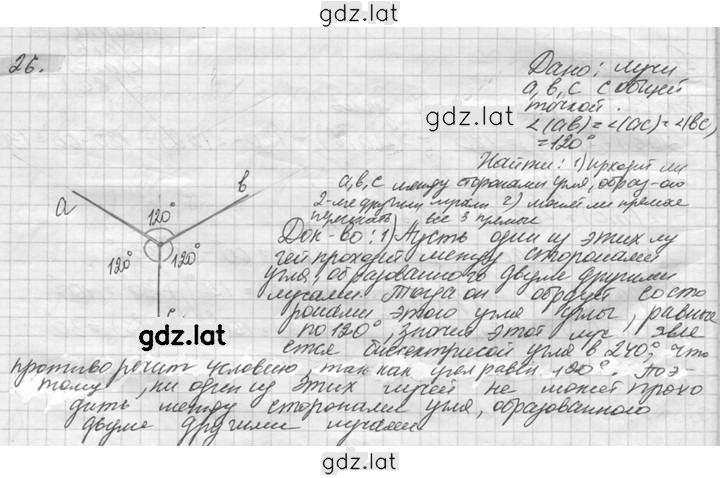 gdz.lat
26.
Дано: лучи
a, b, c с общей
точкой.
gdz.lat
∠(ab)=∠(ac)=∠(bc)
=120°
Найти: 1) проходит ли
a, b, c между сторонами угла, образ-ого
2-мя другими лучами 2) может ли прямая
пересекать все 3 прямые
a
b
120°
120°
120°
c
gdz.lat
Док-во: 1) Пусть один из этих лу
чей проходит между сторонами
угла, образованного двумя другими
лучами. Тогда он образует со сто
ронами этого угла углы, равные
по 120°, значит этот луч явля
ется биссектрисой угла в 240°, что
противоречит условию, так как угол равен 120°. Поэ-
тому, ни один из этих лучей не может прохо
дить между сторонами угла, образованного
двумя другими лучами
gdz.lat